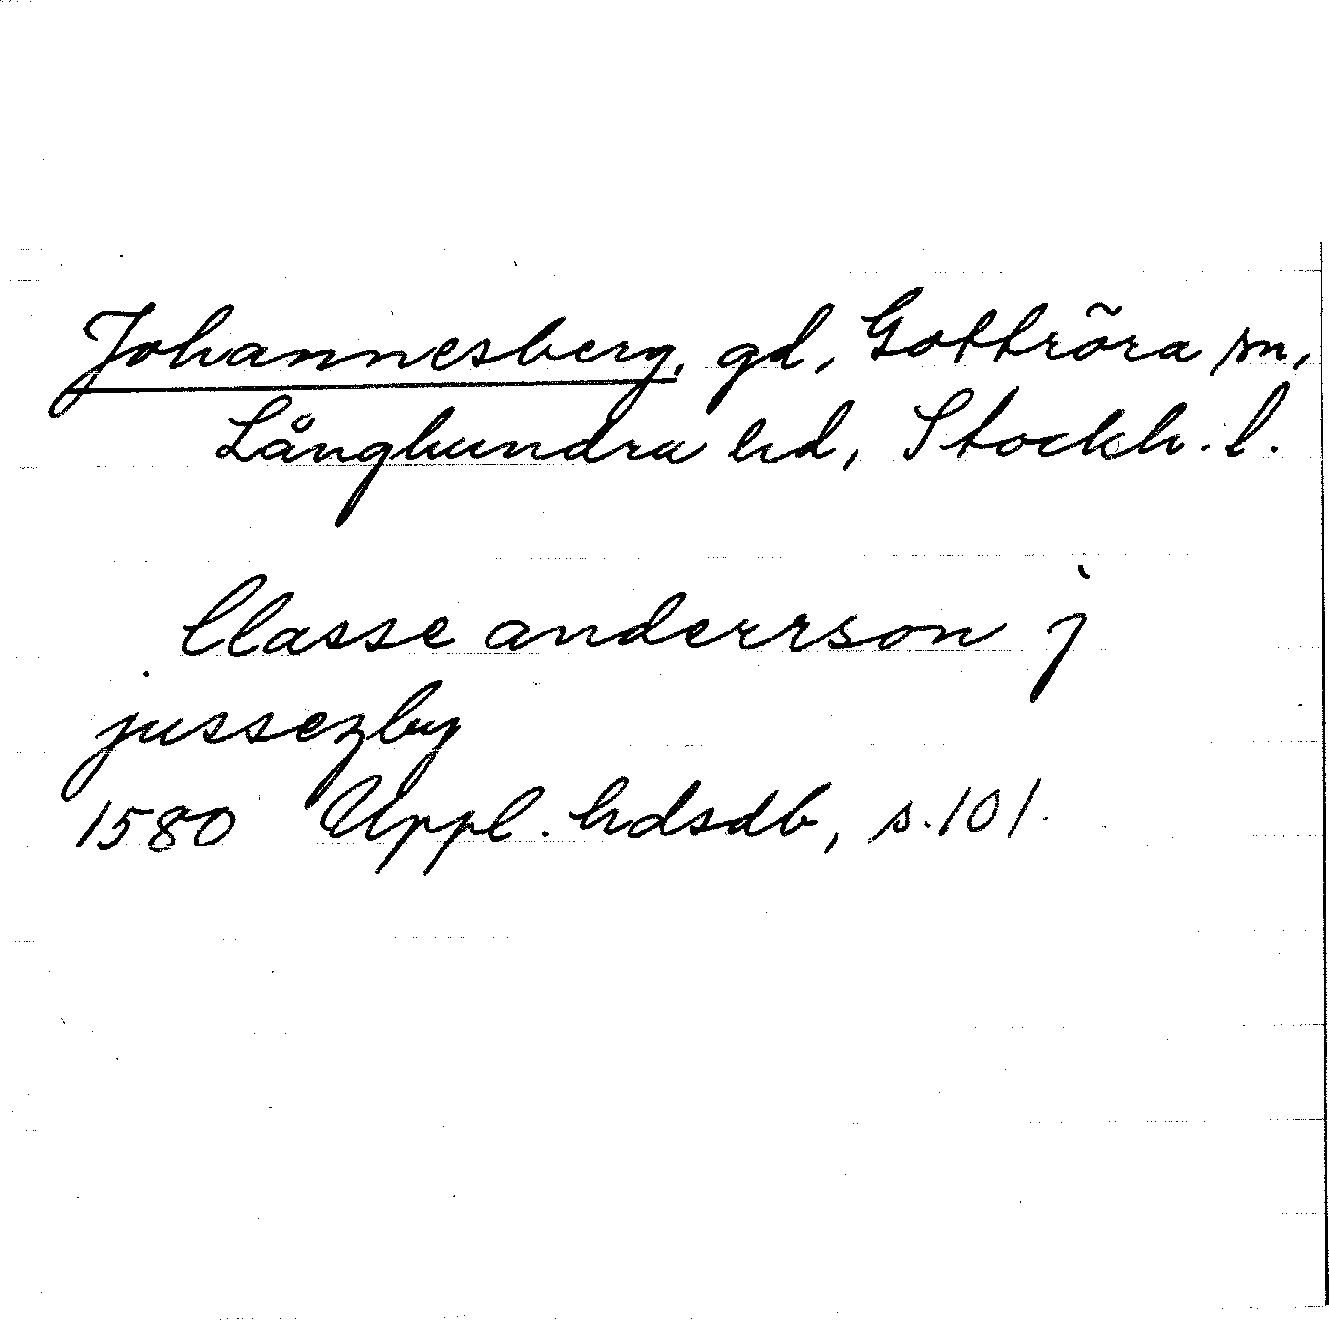 Johannesberg, gd, Gottröra sn,
Långhundra hd, Stockh. l.
Classe anderrson j
jussezby
1580 Uppl. hdsdb, s. 101.